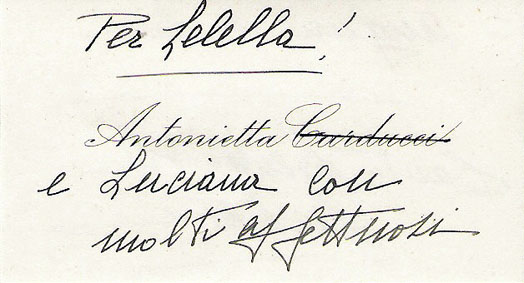 Per Lelella!
Antonietta Carducci
e Luciana con
molti affettuosi